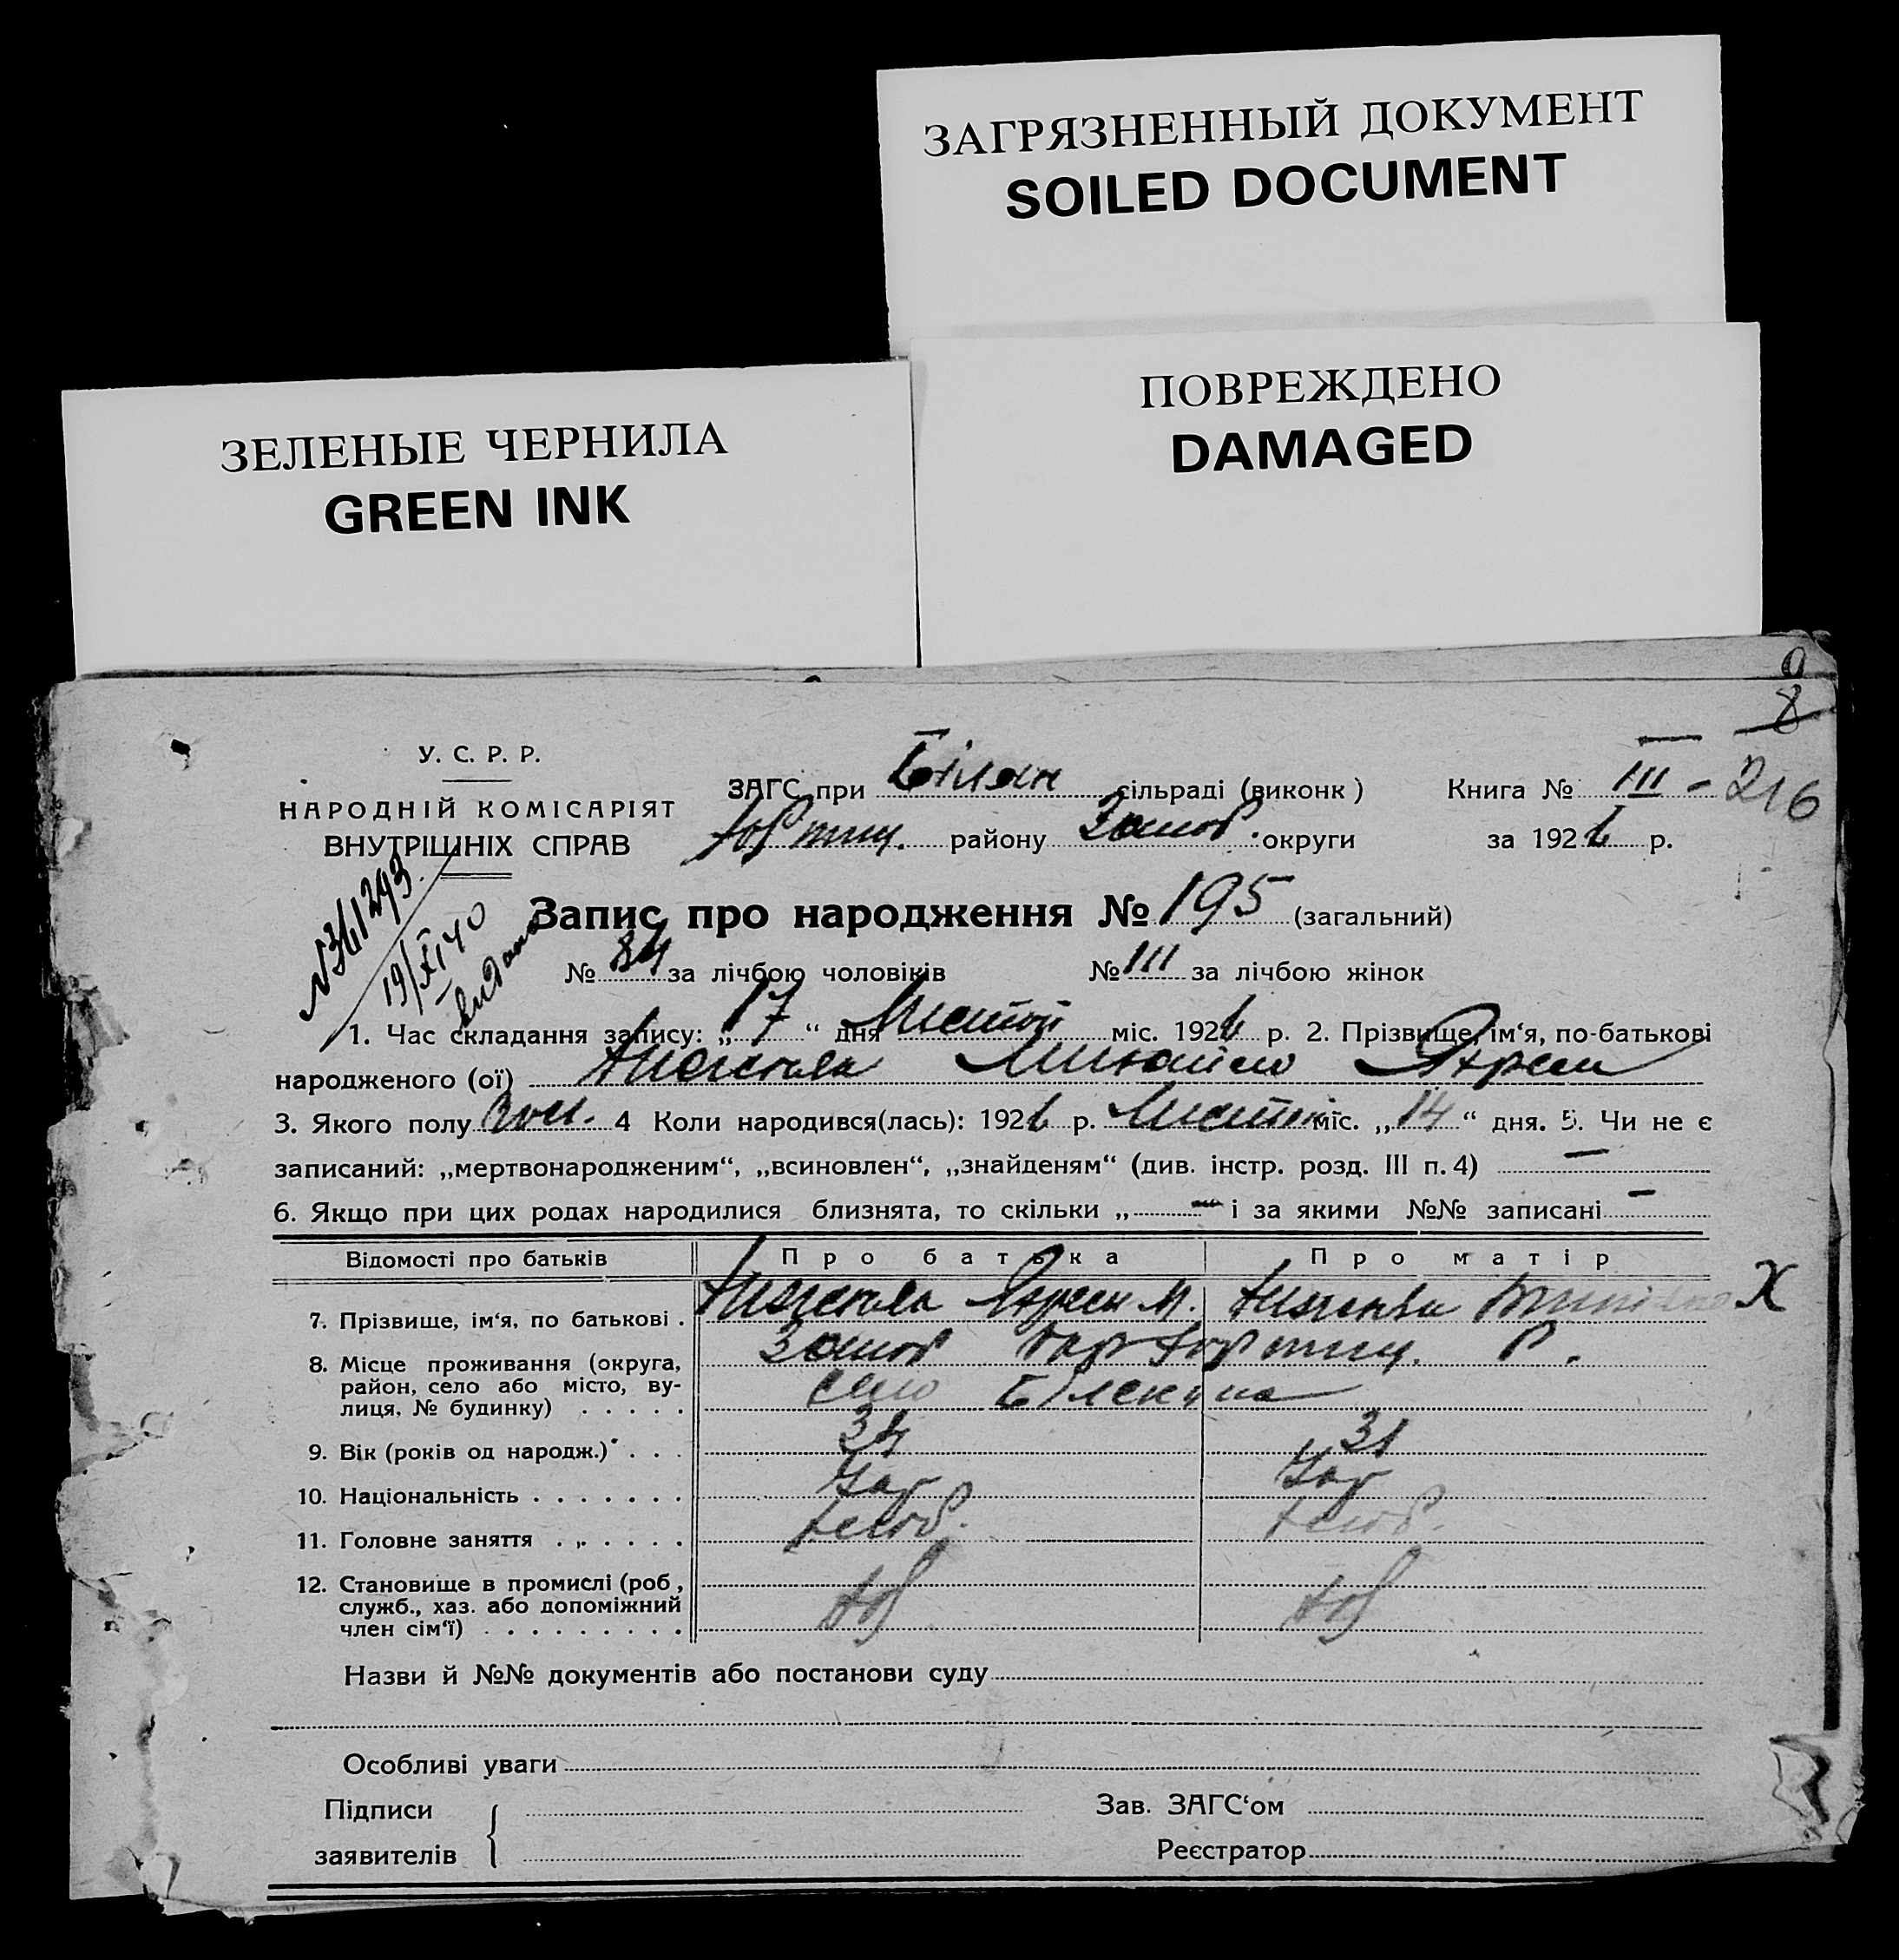 ЗАГРЯЗНЕННЫЙ ДОКУМЕНТ
SOILED DOCUMENT
ПОВРЕЖДЕНО
DAMAGED
ЗЕЛЕНЫЕ ЧЕРНИЛА
GREEN INK
8
У. С. Р. Р.
НАРОДНІЙ КОМІСАРІЯТ
ВНУТРІШНІХ СПРАВ
ЗАГС при Білен сільраді (виконк ) Книга № III - 216
району Запор. округи за 1926 р.
№361293
19/XI 40
видано
Запис про народження № 195 (загальний)
№ 84 за лічбою чоловіків № 111 за лічбою жінок
1. Час складання запису: „ 17 “ дня міс. 1926 р. 2. Прізвище, ім‘я, по-батькові
народженого (ої) Михайло
3. Якого полу чол. 4 Коли народився(лась): 1926 р. міс. „ 14 “ дня. 5. Чи не є
записаний: „мертвонародженим“, „всиновлен“, „знайденям“ (див. інстр. розд. III п. 4) —
6. Якщо при цих родах народилися близнята, то скільки „ — “ і за якими №№ записані —
Відомості про батьків Про батька Про матір
7. Прізвище, ім‘я, по батькові . X
8. Місце проживання (округа, Запор Р.
район, село або місто, ву- село Біленьке
лиця, № будинку) . . . . .
9. Вік (років од народж.) . . . 34 31
10. Національність . . . . . . . Укр Укр
11. Головне заняття . . . . . . хлиб. хлиб.
12. Становище в промислі (роб.,
служб., хаз. або допоміжний
член сім‘ї) . . . . . . . . .
Назви й №№ документів або постанови суду
Особливі уваги
Підписи Зав. ЗАГС‘ом
заявителів Реєстратор